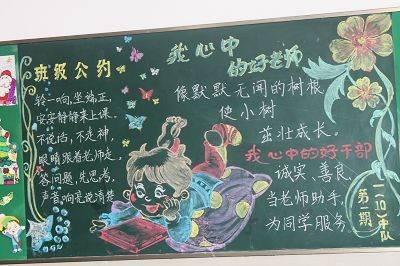 班级公约
铃一响,坐端正,
安安静静来上课。
不说话,不走神,
眼睛跟着老师走。
答问题,先思考,
声音响亮说清楚
我心中
的好老师
像默默无闻的树根
使小树
茁壮成长。
我心中的好干部
诚实、善良、
当老师助手,
为同学服务。
一(10)中队
第一期